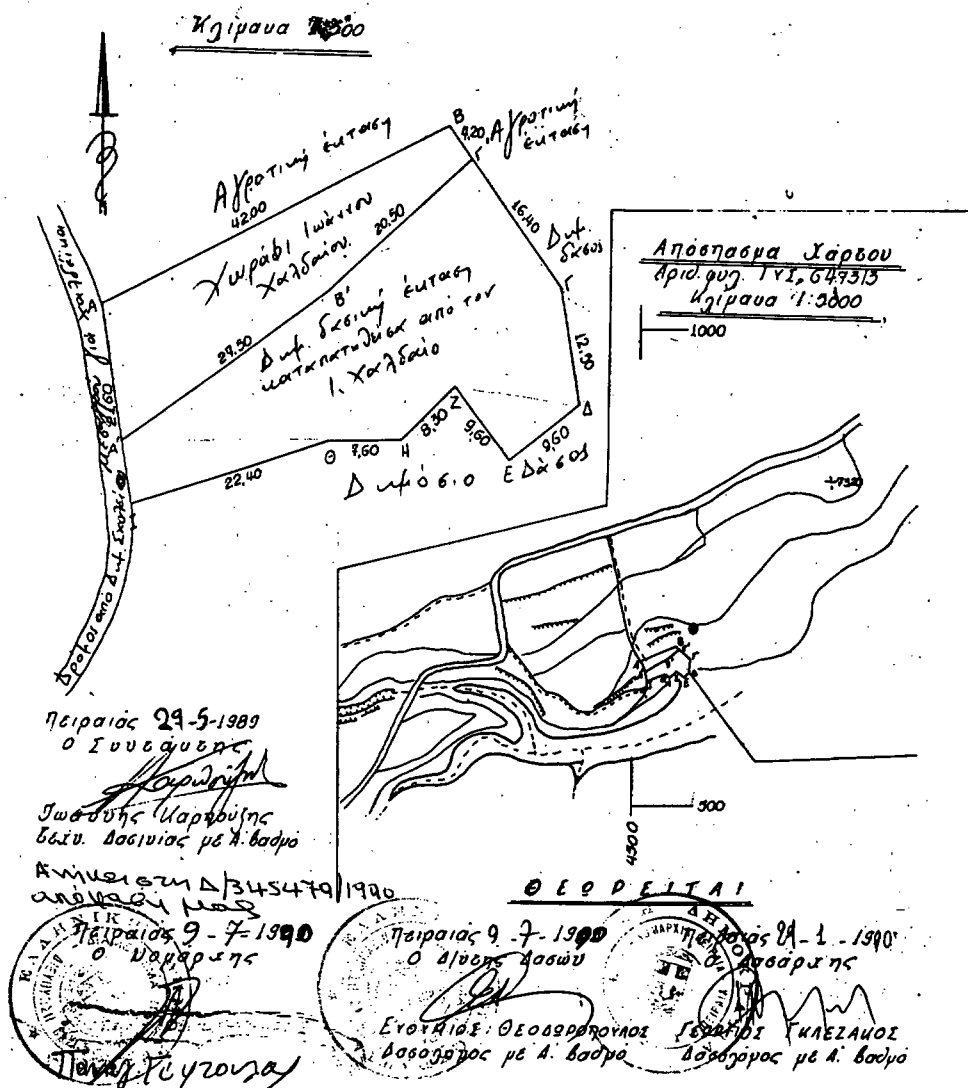 Κλίμακα
Β
4.20
Αγροτική έκταση
Αγροτική έκταση
42.00
Γ'
16.40
Δημ. δάσος
Χωράφι Ιωάννου Χαλδαίου
20.50
Α
Β'
Γ
29.50
Δημ. δασική έκταση
καταπατηθείσα από τον
Ι. Χαλδαίο
12.50
Α'
Ζ
Δ
8.30
9.60
9.60
Θ
7.60
Η
Ε
22.40
Δημόσιο Δάσος
Δρόμος από Δημ. Σχολείο
Απόσπασμα Χάρτου
Αριθ. φυλ. ΓΥΣ, 6473/3
Κλίμακα 1:5000
1000
500
4500
Πειραιάς 29-5-1989
Ο Συντάκτης
Ιωάννης Καρπούζης
τεχν. Δασονίας με Α. βαθμό
Ανήκει στη Δ/345479/1990
απόφαση μας
Πειραιάς 9-7-1990
Ο Νομάρχης
ΘΕΩΡΕΙΤΑΙ
Πειραιάς 9-7-1990
Ο Δ/ντης Δασών
Θεοδωρόπουλος
Δασολόγος με Α. βαθμό
Πειραιάς 29-1-1990
Ο Δασάρχης
Γεώργιος Γκλεζάκος
Δασολόγος με Α. βαθμό